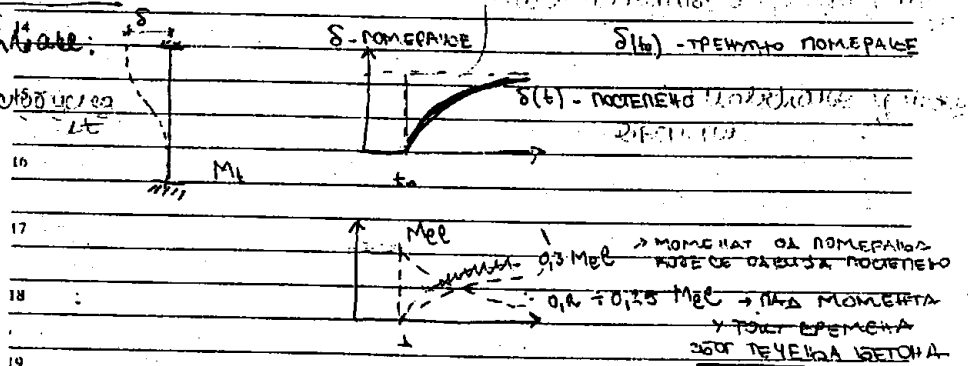 14
δ
δ - ПОМЕРАЊЕ
δ(t₀) - ТРЕНУТНО ПОМЕРАЊЕ
δ(t) - ПОСТЕПЕНО
16
Mt
t₀
17
Mel
0,3 Mel → МОМЕНАТ ОД ПОМЕРАЊА
КОЈЕ СЕ ОДВИЈА ПОСТЕПЕНО
18
0,2 ÷ 0,25 Mel → ПАД МОМЕНТА
У ТОКУ ВРЕМЕНА
ЗБОГ ТЕЧЕЊА БЕТОНА
19